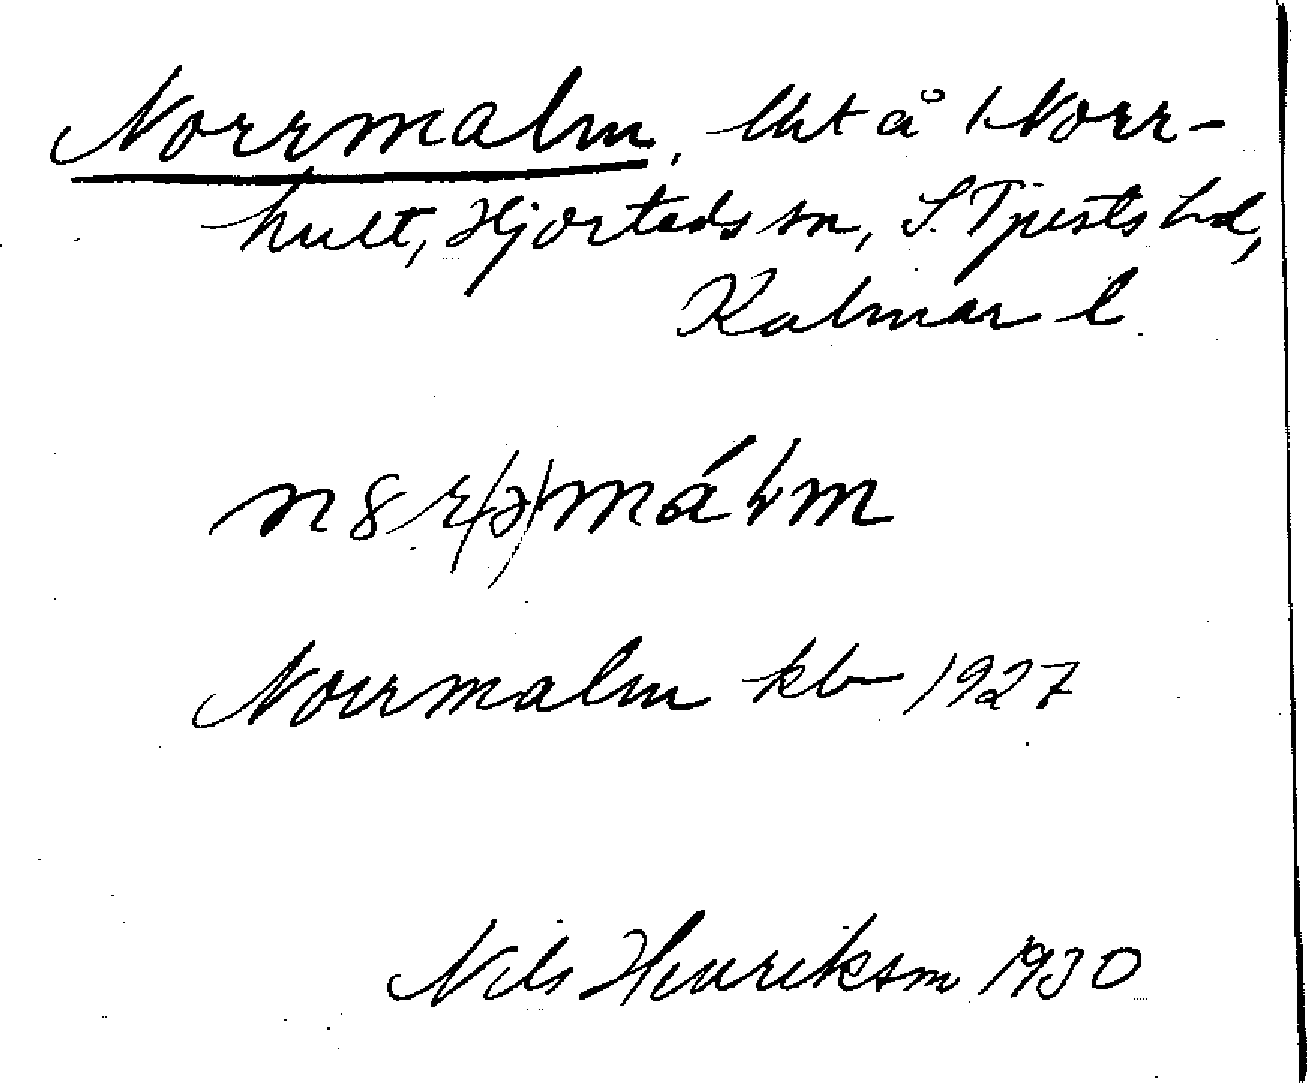 Norrmalm, lht å 1 Norr-
hult, Hjorteds sn, S. Tjusts hd,
Kalmar l.
Norrmalm kb 1927
Nils Henriksson 1930